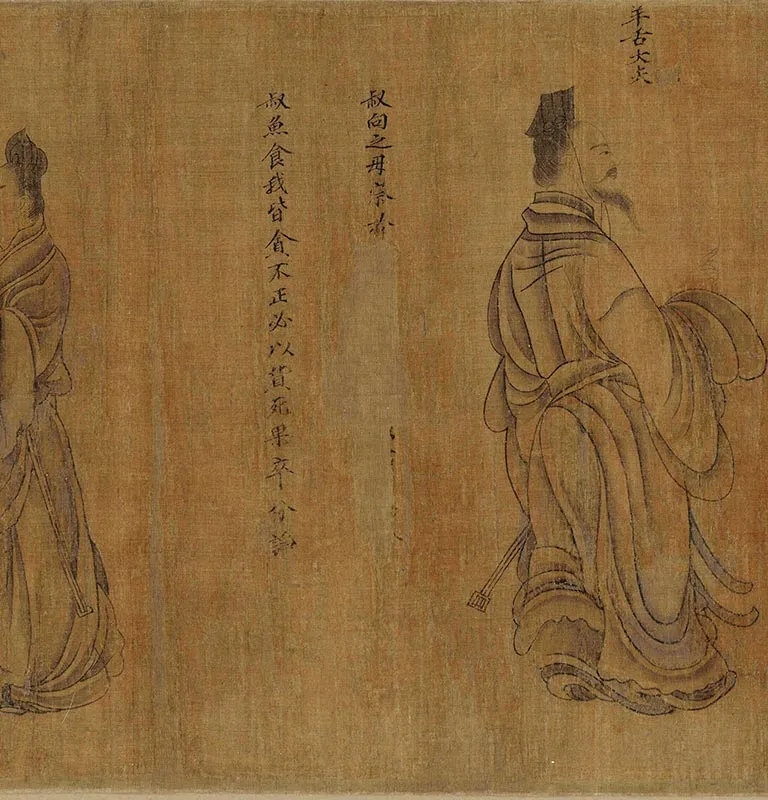 羊舌大夫
叔向之母察於
叔魚食我皆貪不正必以貨死果卒分諍